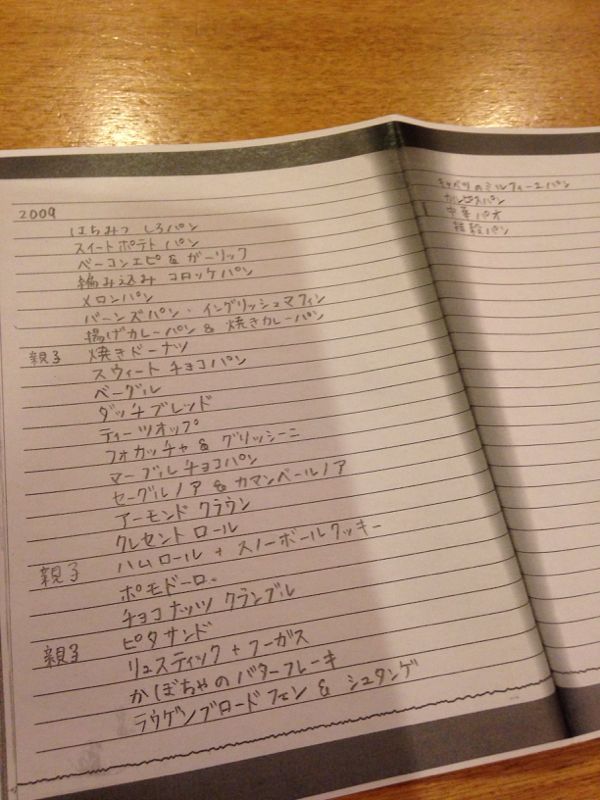 2009
はちみつ しろパン
スイートポテト パン
ベーコンエピ & ガーリック
編み込み コロッケパン
メロンパン
バーンズパン・イングリッシュマフィン
揚げカレーパン & 焼きカレーパン
親子 焼きドーナツ
スウィート チョコパン
ベーグル
ダッチブレッド
ティーツオップ
フォカッチャ & グリッシーニ
マーブルチョコパン
セーグルノア & カマンベールノア
アーモンド クラウン
クレセント ロール
親子 ハムロール + スノーボールクッキー
ポモドーロ
チョコナッツ クランブル
親子 ピタサンド
リュスティック + フーガス
かぼちゃのバターフレーキ
ラウゲンブロードフェン & シュタンゲ
キャベツのミルフィーユパン
パン
中華パオ
パン